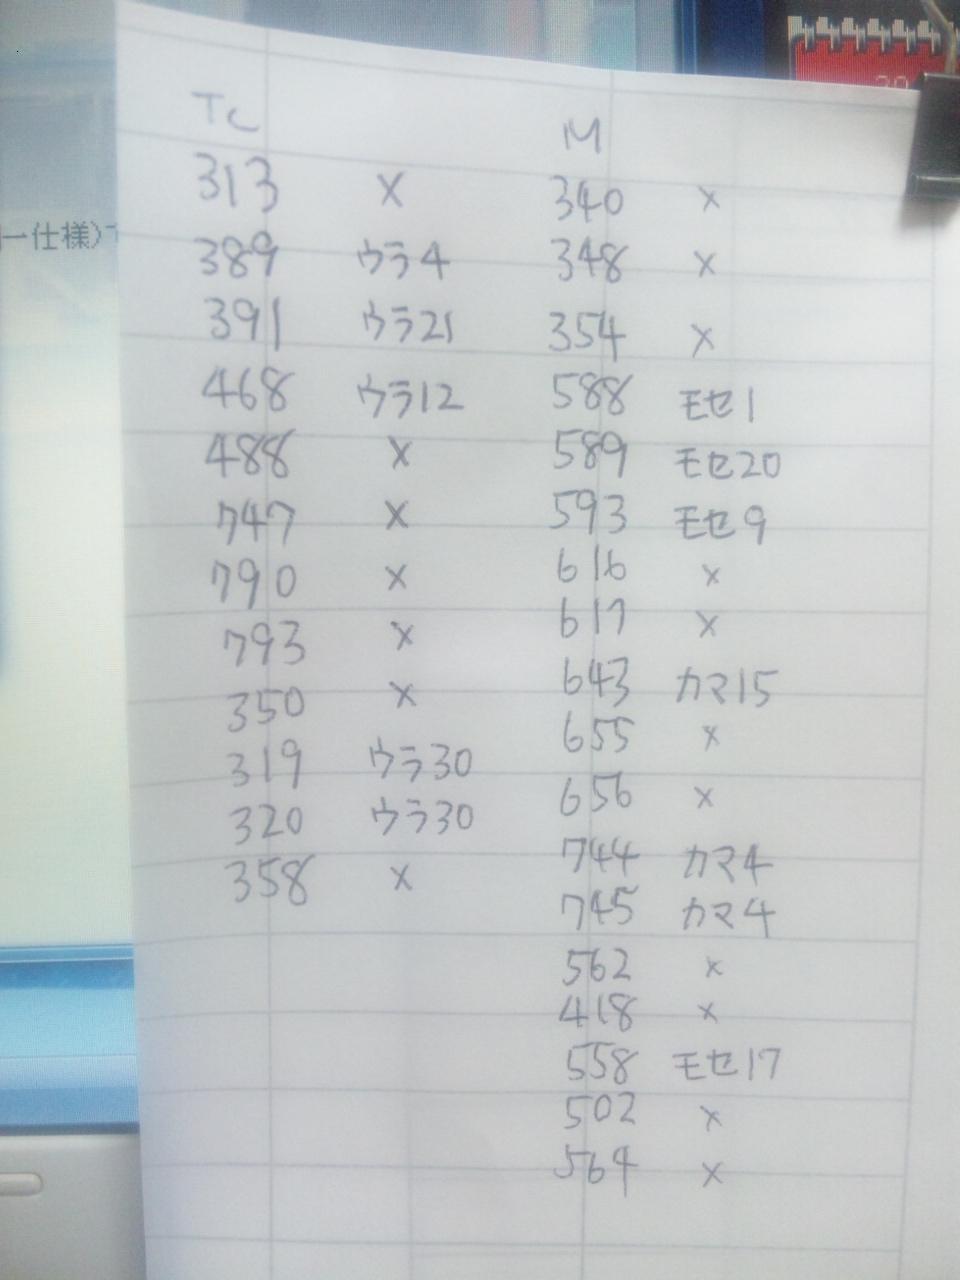 Tc
313 ×
389 ウラ4
391 ウラ21
468 ウラ12
488 ×
747 ×
790 ×
793 ×
350 ×
319 ウラ30
320 ウラ30
358 ×
M
340 ×
348 ×
354 ×
588 モセ1
589 モセ20
593 モセ9
616 ×
617 ×
643 カマ15
655 ×
656 ×
744 カマ4
745 カマ4
562 ×
418 ×
558 モセ17
502 ×
564 ×
一仕様)